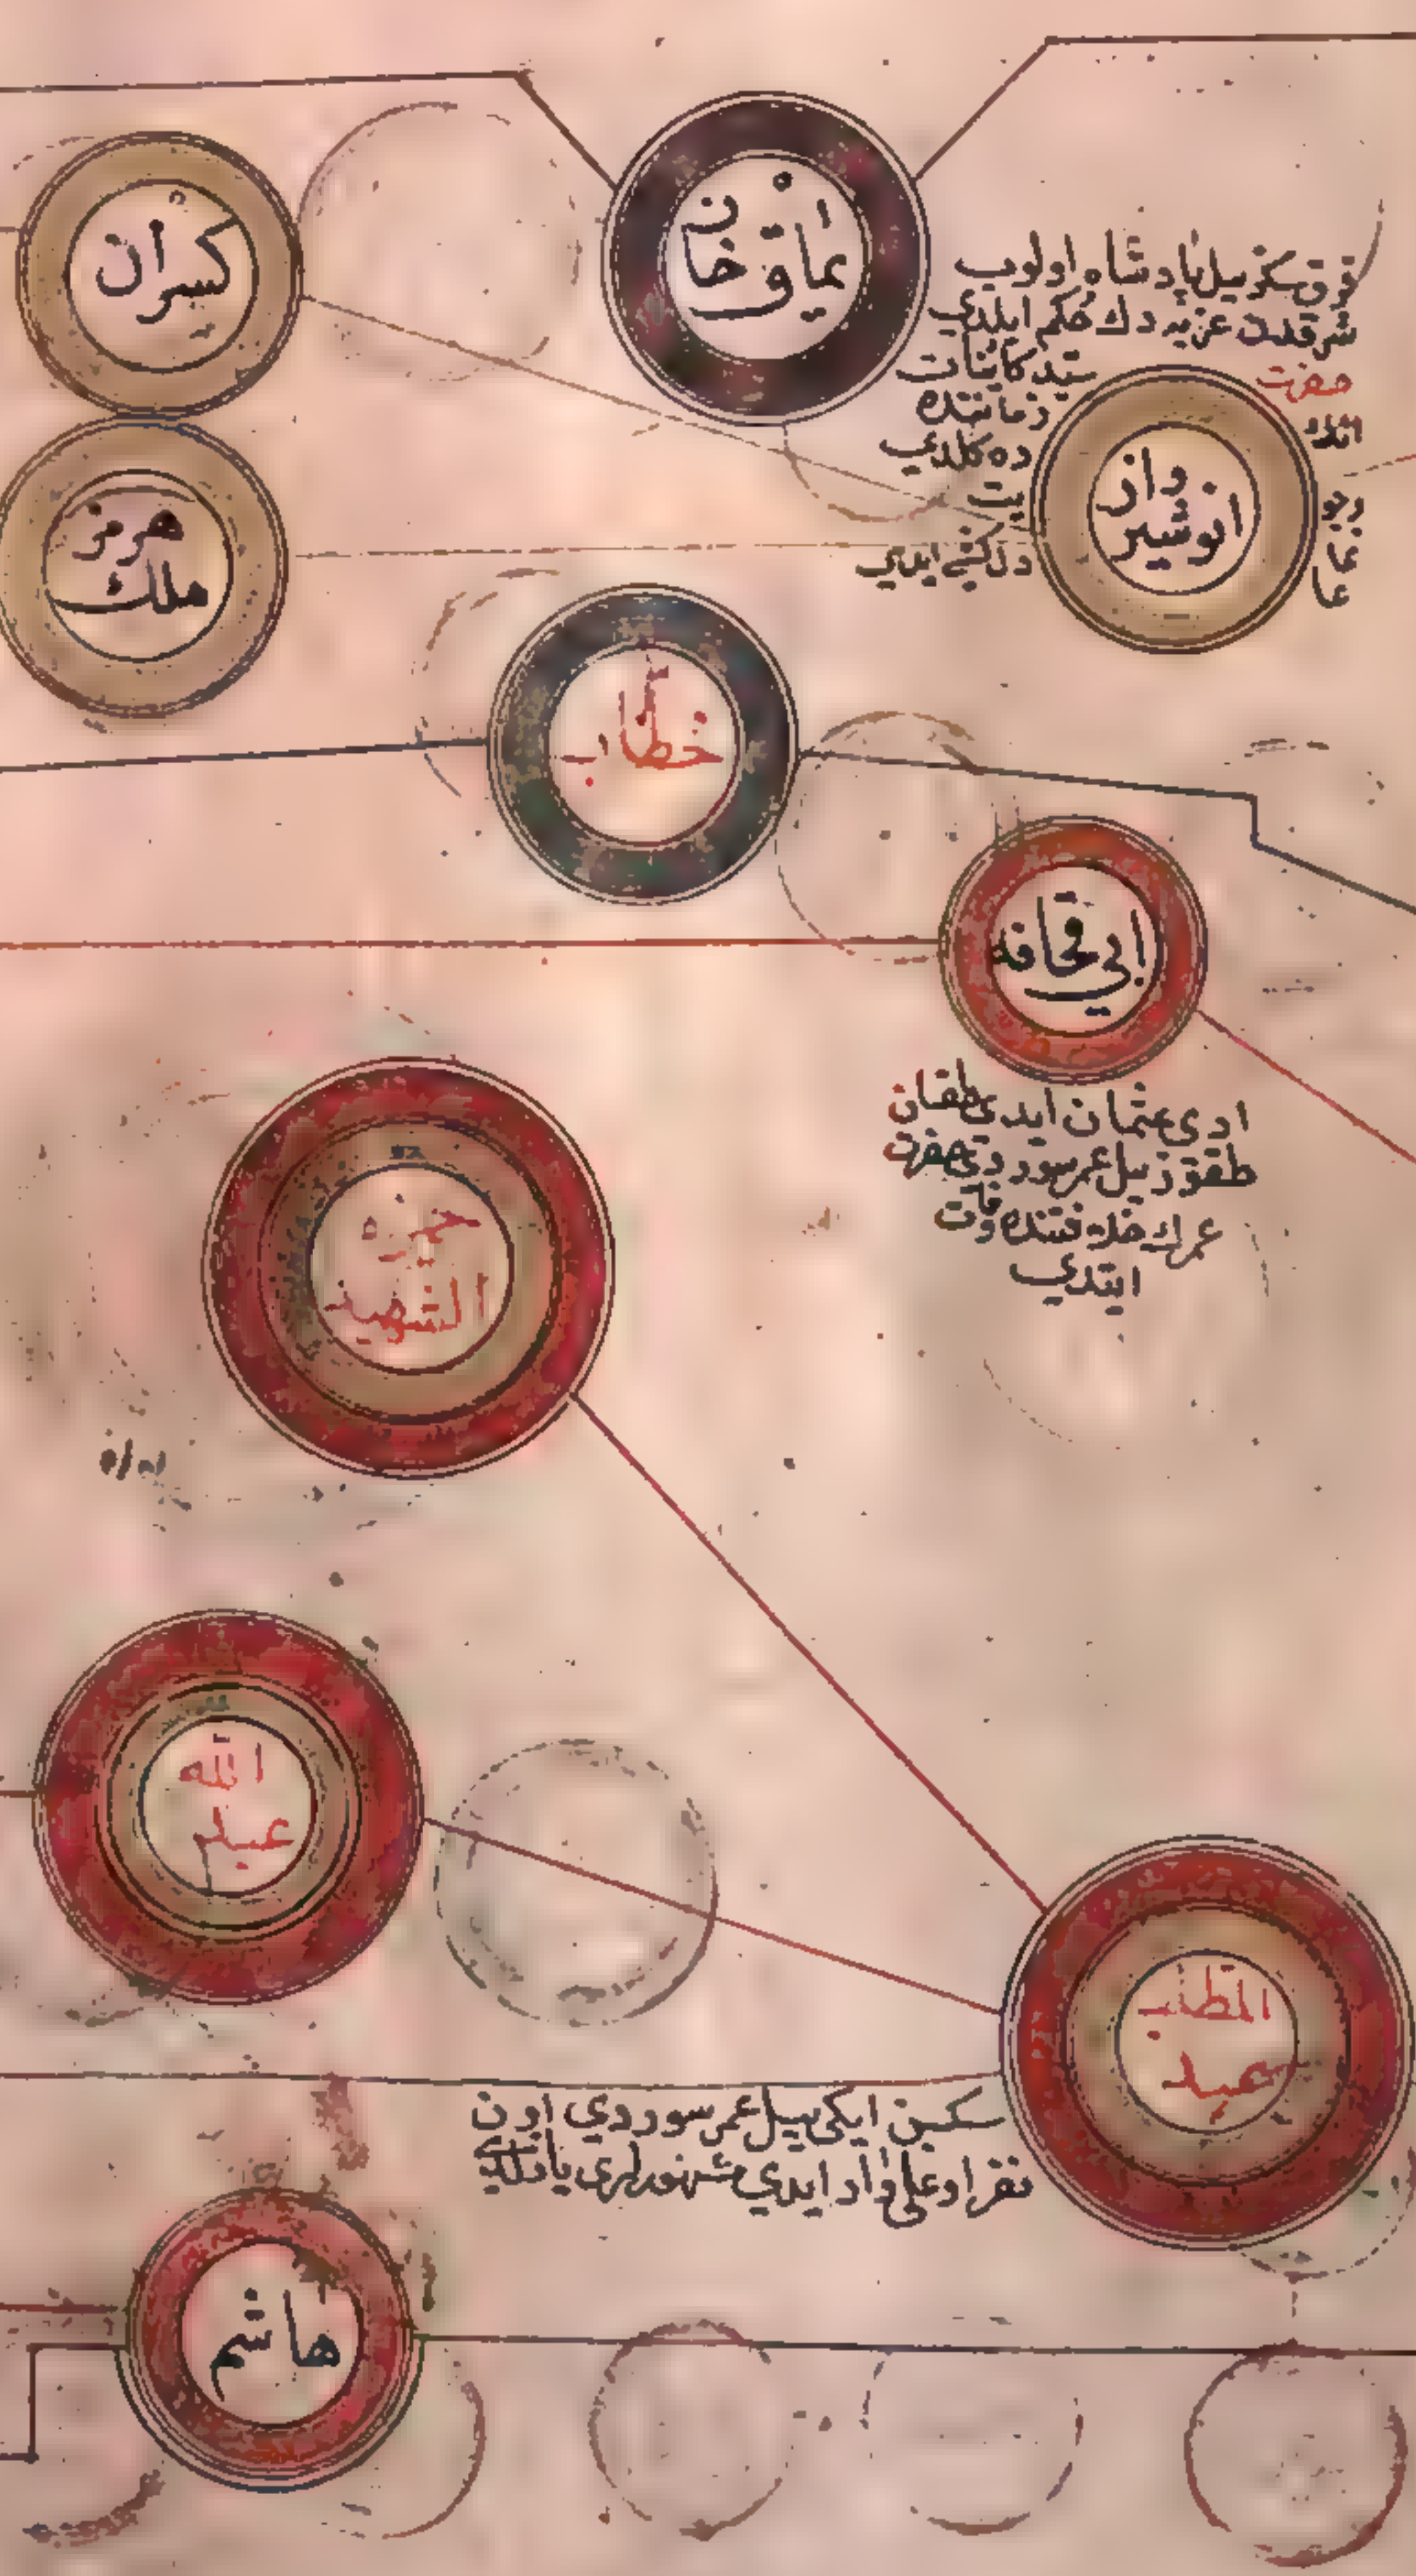 كسران
يماق خان
قرق سكز ييل پادشاه اولوب
شرقدن غربه دك حكم ايلدي
حضرت
سيد كاينات
انك
زماننده
ده كلدي
وجو
انوشيرواز
هرمز
ملك
خطاب
ابي قحافه
ادى عثمان ايدى طقسان
طقوز ييل عمر سوردي حضرت
عمرك خلافتنده وفات
ايتدي
حمزه
الشهيد
عبد
الله
عبد
المطلب
سكسن ايكى ييل عمر سوردي اون
نفر اوغلى وار ايدي مشهورلرى يازلدي
هاشم